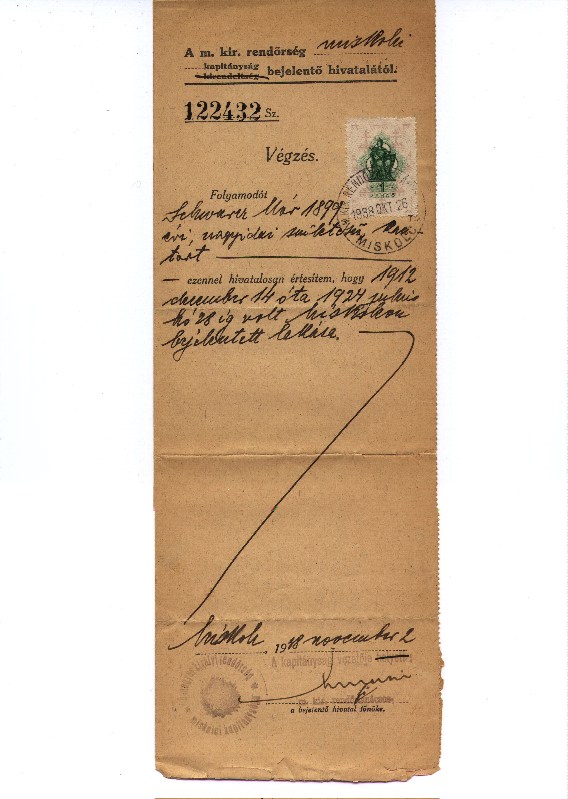 A m. kir. rendőrség miskolci
kapitányság
kirendeltség bejelentő hivatalától.
122432 Sz.
Végzés.
1
1938 OKT 26
MISKOLC
Folyamodót
Schwarcz Mór 1899
évi, nagyidai születésű,
— ezennel hivatalosan értesítem, hogy 1912
december 14 óta 1924 június
hó 28 ig volt Miskolcon
bejelentett lakása.
Miskolc, 1938 november 2
A kapitányság vezetője helyett:
m. kir. rendőrtanácsos,
a bejelentő hivatal főnöke.
magyar királyi rendőrség
miskolci kapitánysága